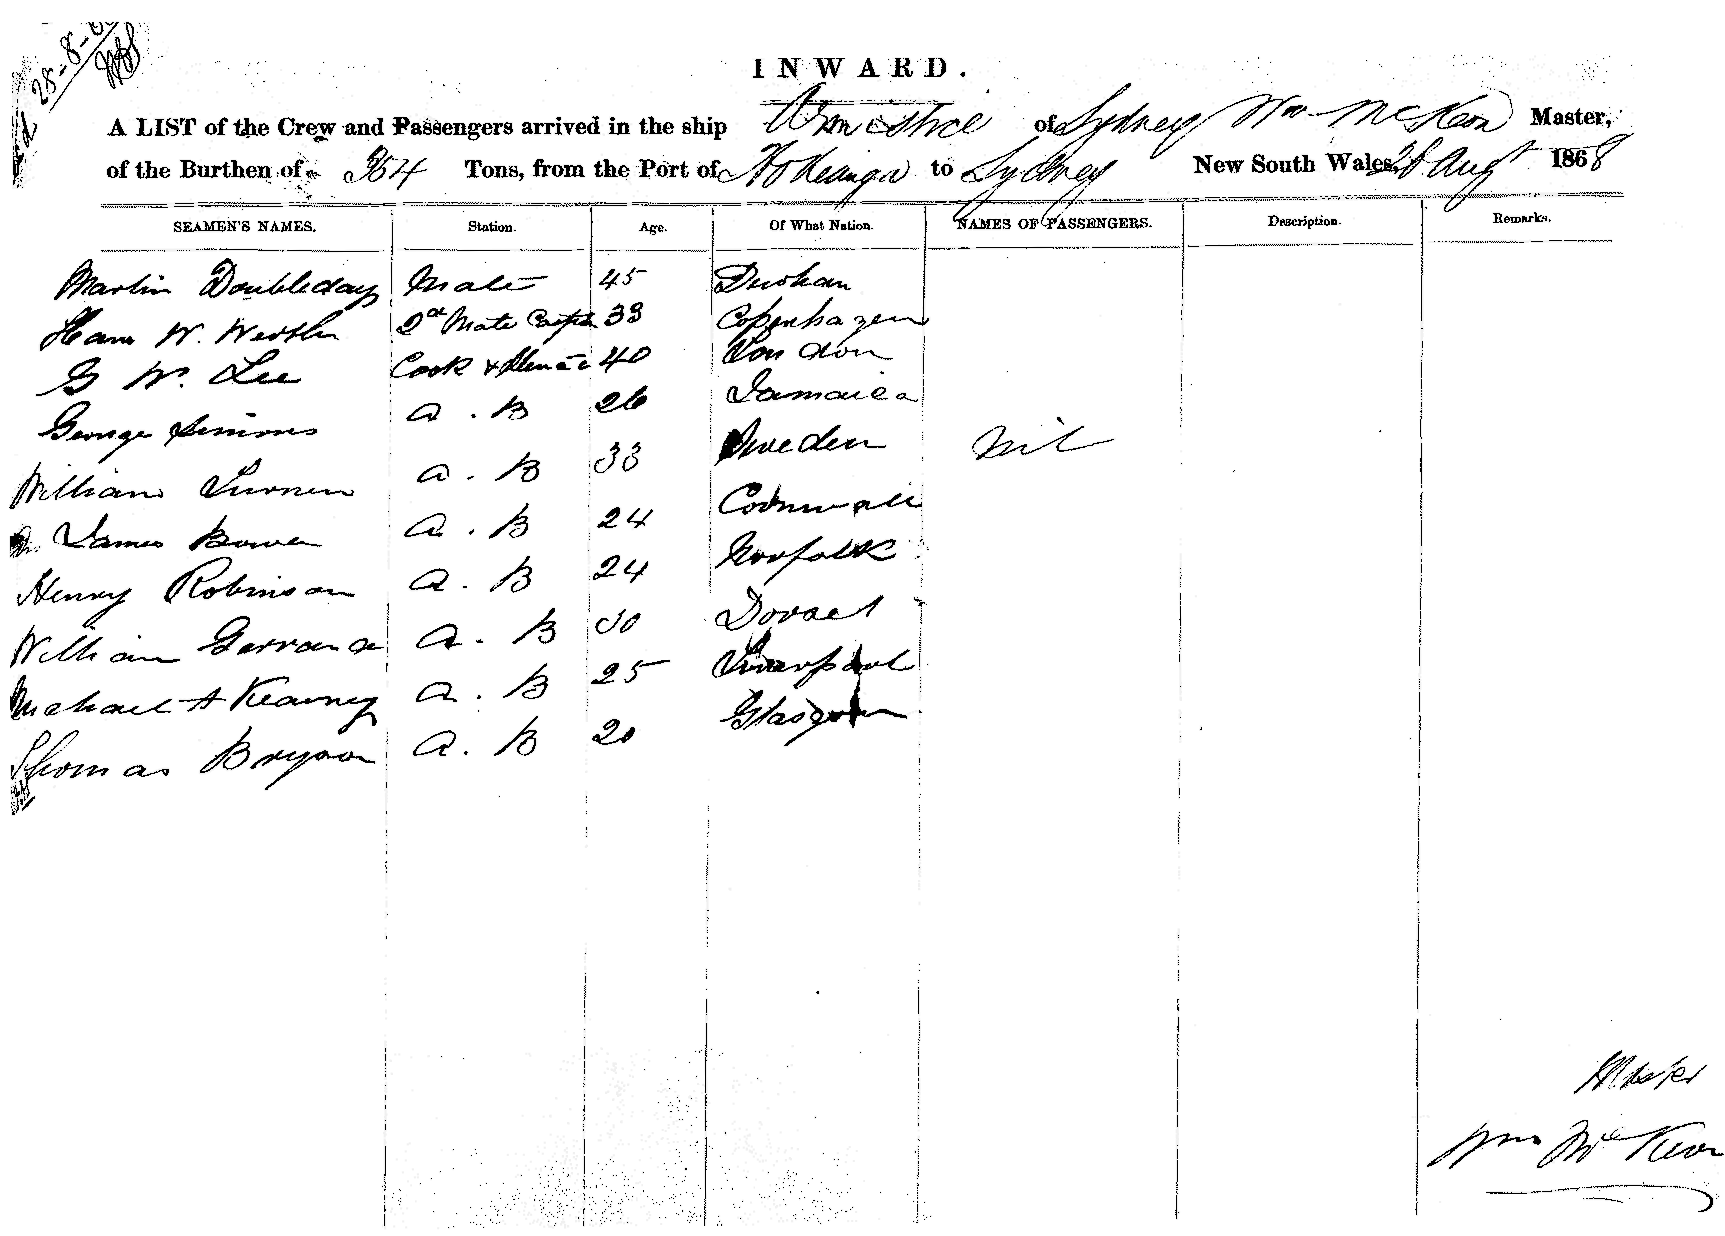 28-8-6
INWARD.
A LIST of the Crew and Passengers arrived in the ship Armistice of Sydney Wm McKeon Master,
of the Burthen of 364 Tons, from the Port of Hokianga to Sydney New South Wales 28 Augt 1868
SEAMEN'S NAMES. Station. Age. Of What Nation. NAMES OF PASSENGERS. Description. Remarks.
Martin Doubleday Mate 45 Durham
Hans W. 2nd Mate 33 Copenhagen
G W. Lee Cook & 40 London
George Simms A. B 26 Jamaica
William A. B 33 Sweden Nil
James Bower A. B 24 Cornwall
Henry Robinson A. B 24 Norfolk
William A. B 30 Dorset
Michael A Kearney A. B 25 Liverpool
Thomas Bryson A. B 20 Glasgow
Master
Wm McKeon